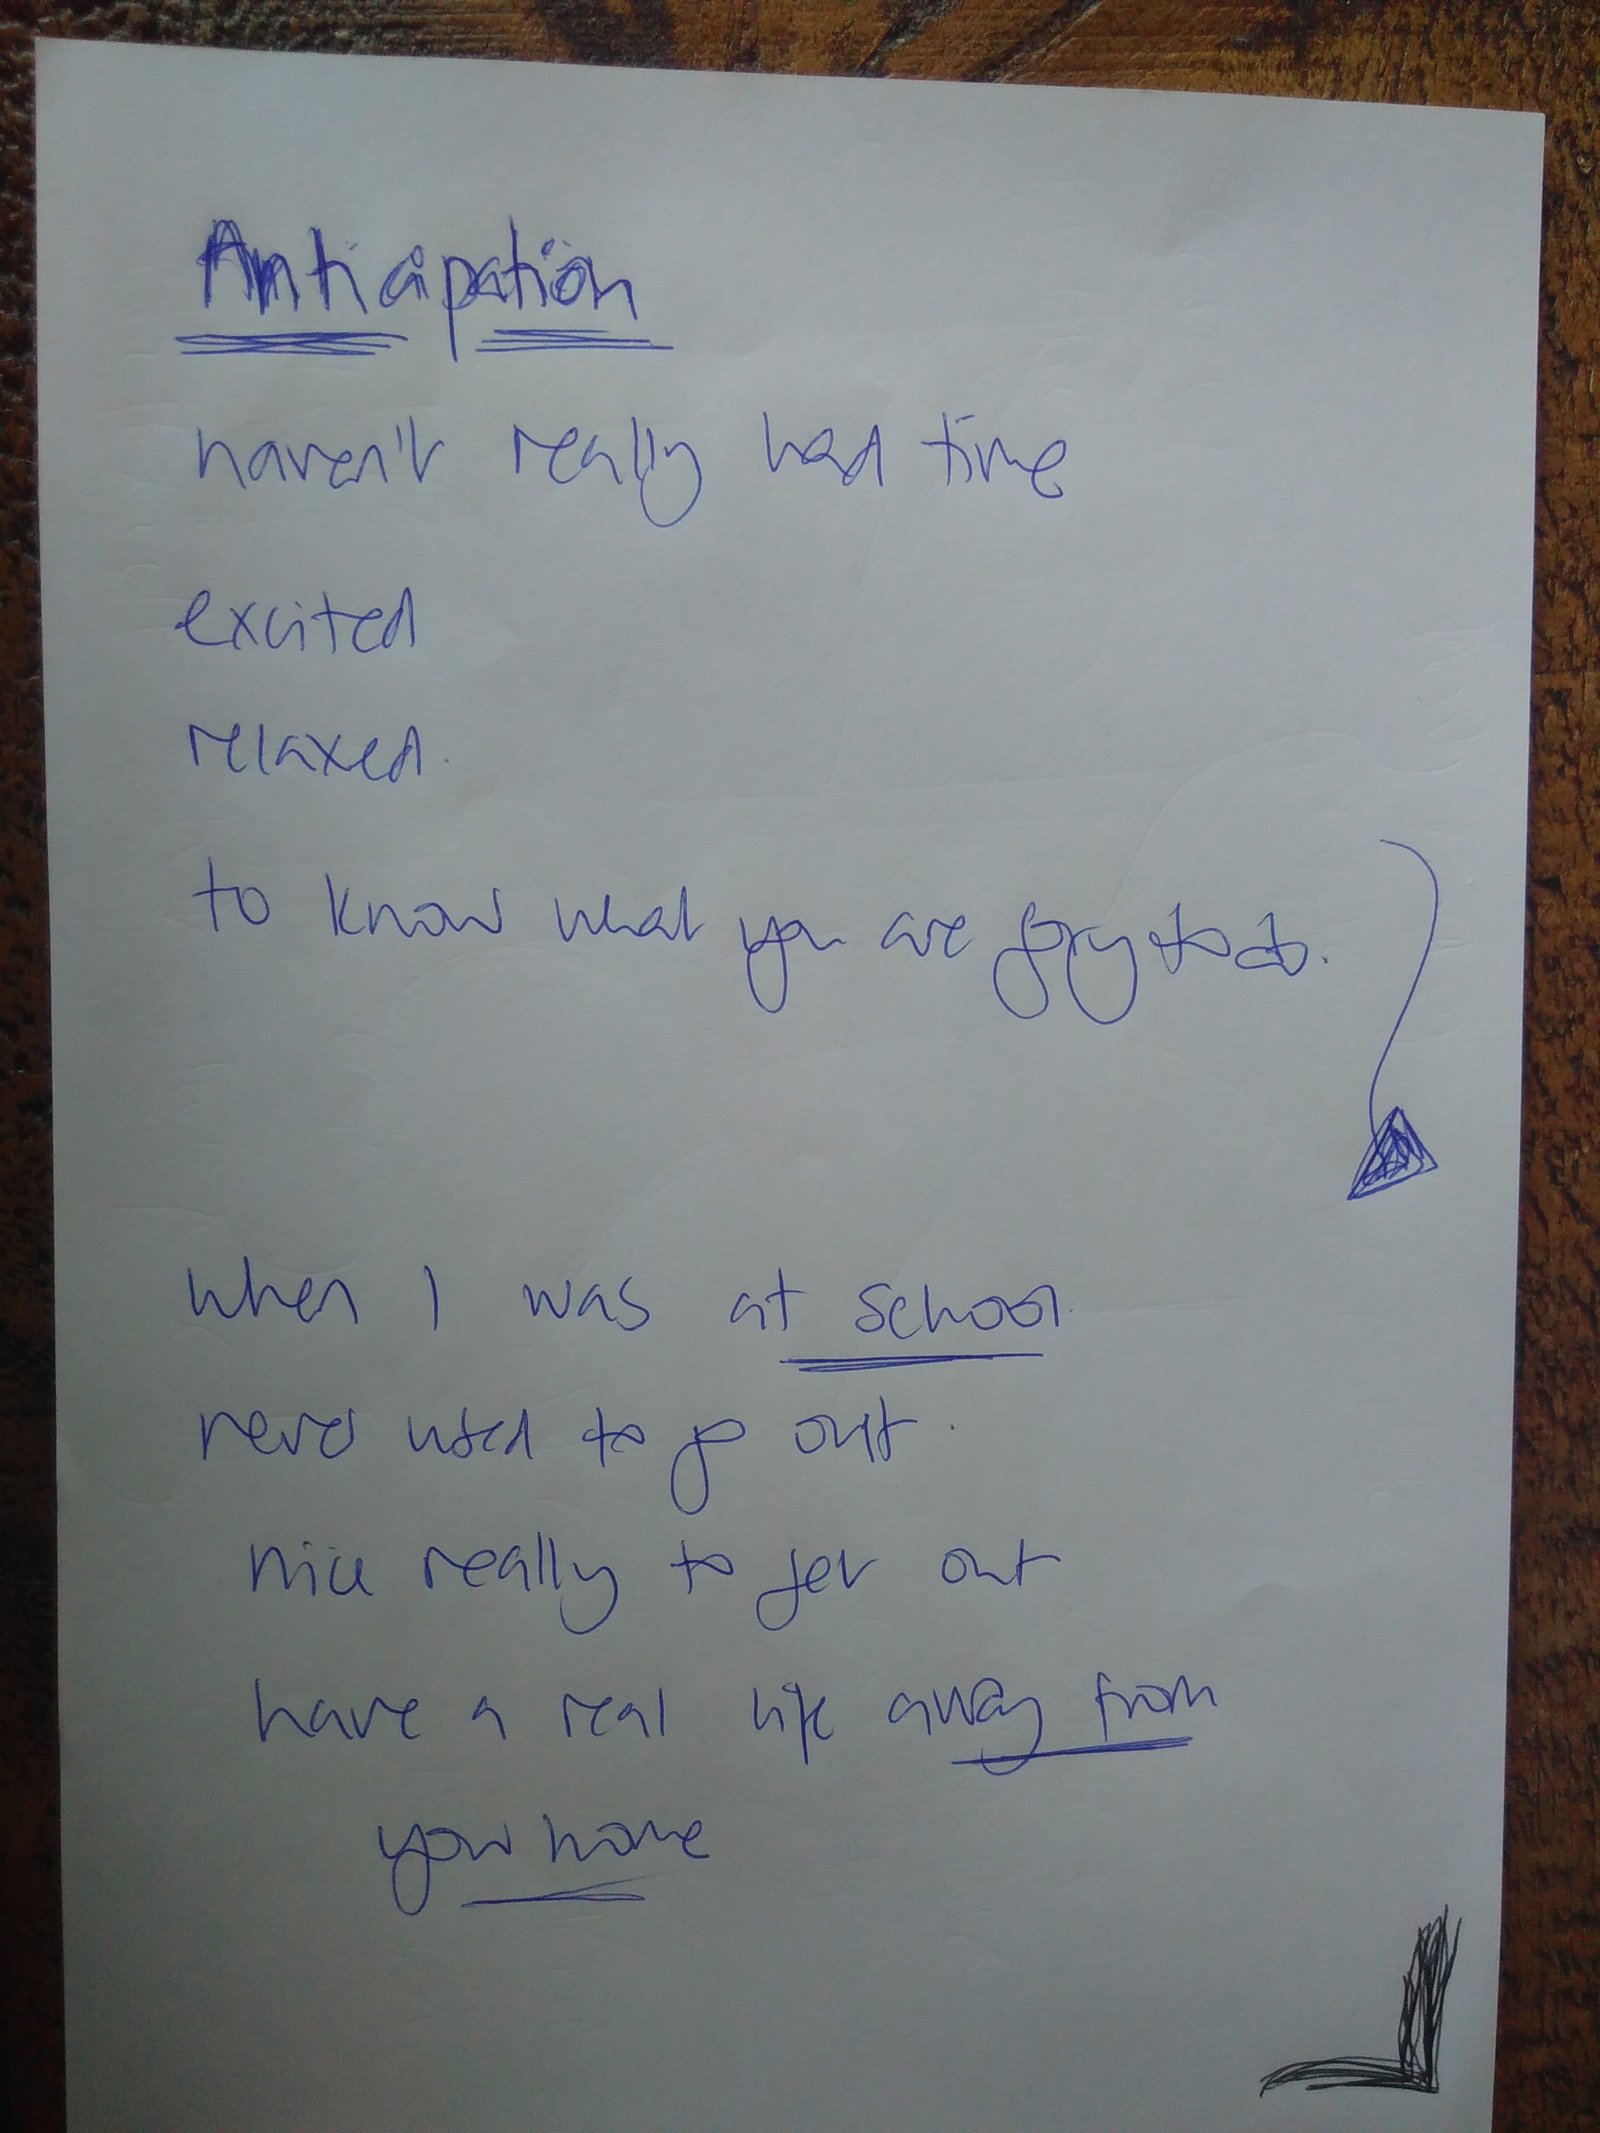 Anticipation
haven't really had time
excited
relaxed.
to know what you are going to do.
when I was at school.
never used to go out.
nice really to get out
have a real life away from
your home